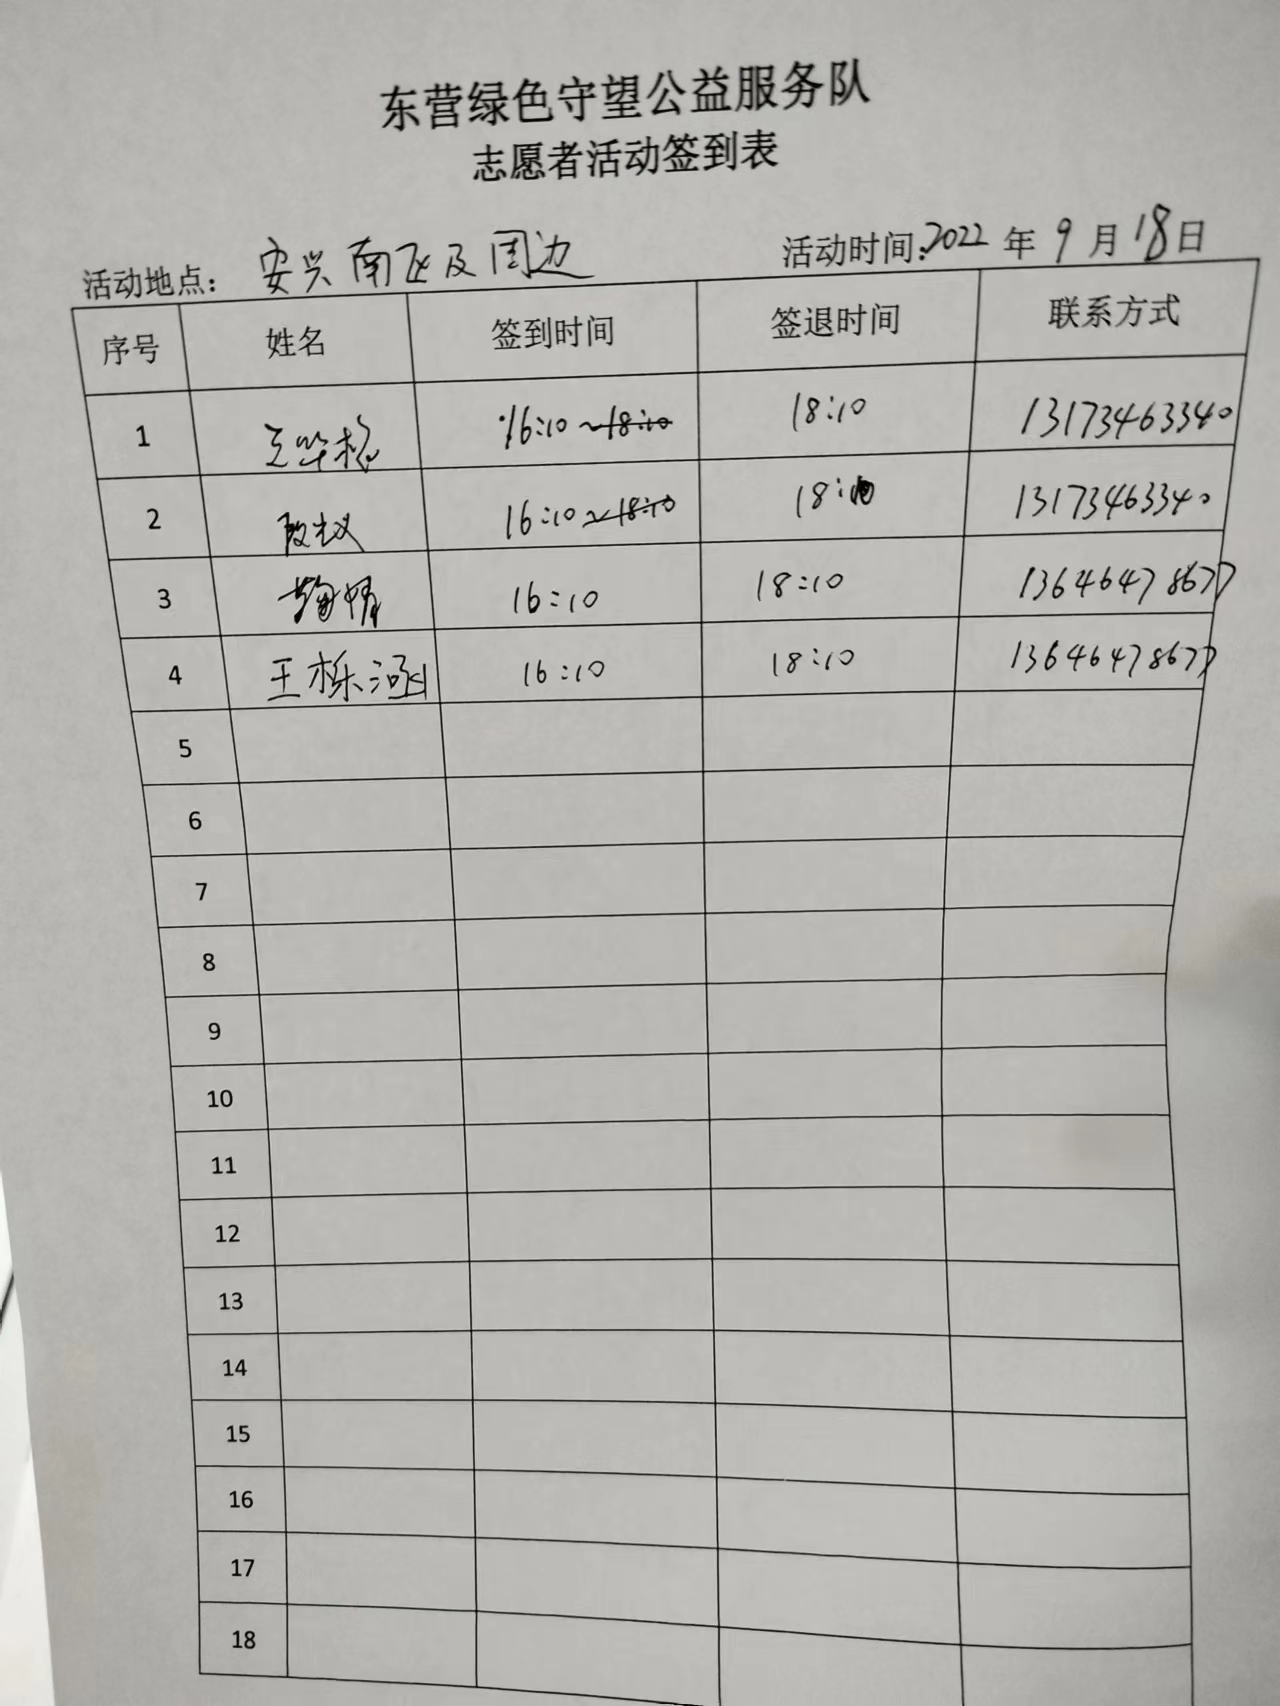 东营绿色守望公益服务队
志愿者活动签到表
活动地点: 安兴南区及周边 活动时间:2022 年 9 月 18 日
序号 姓名 签到时间 签退时间 联系方式
1 16:10 ~18:10 18:10 13173463340
2 16:10 ~18:10 18:10 13173463340
3 16:10 18:10 13646478677
4 王栎涵 16:10 18:10 13646478677
5
6
7
8
9
10
11
12
13
14
15
16
17
18